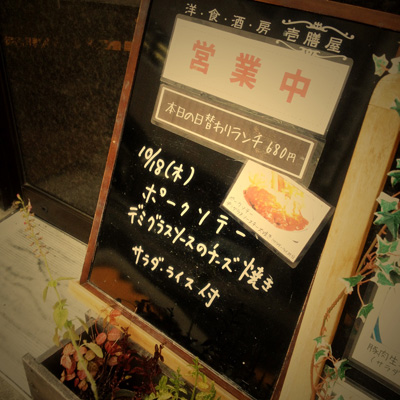 洋・食・酒・房 壱膳屋
営業中
本日の日替わりランチ 680円
10/18(木)
ポークソテー
デミグラスソースのチーズ焼き
サラダ・ライス付